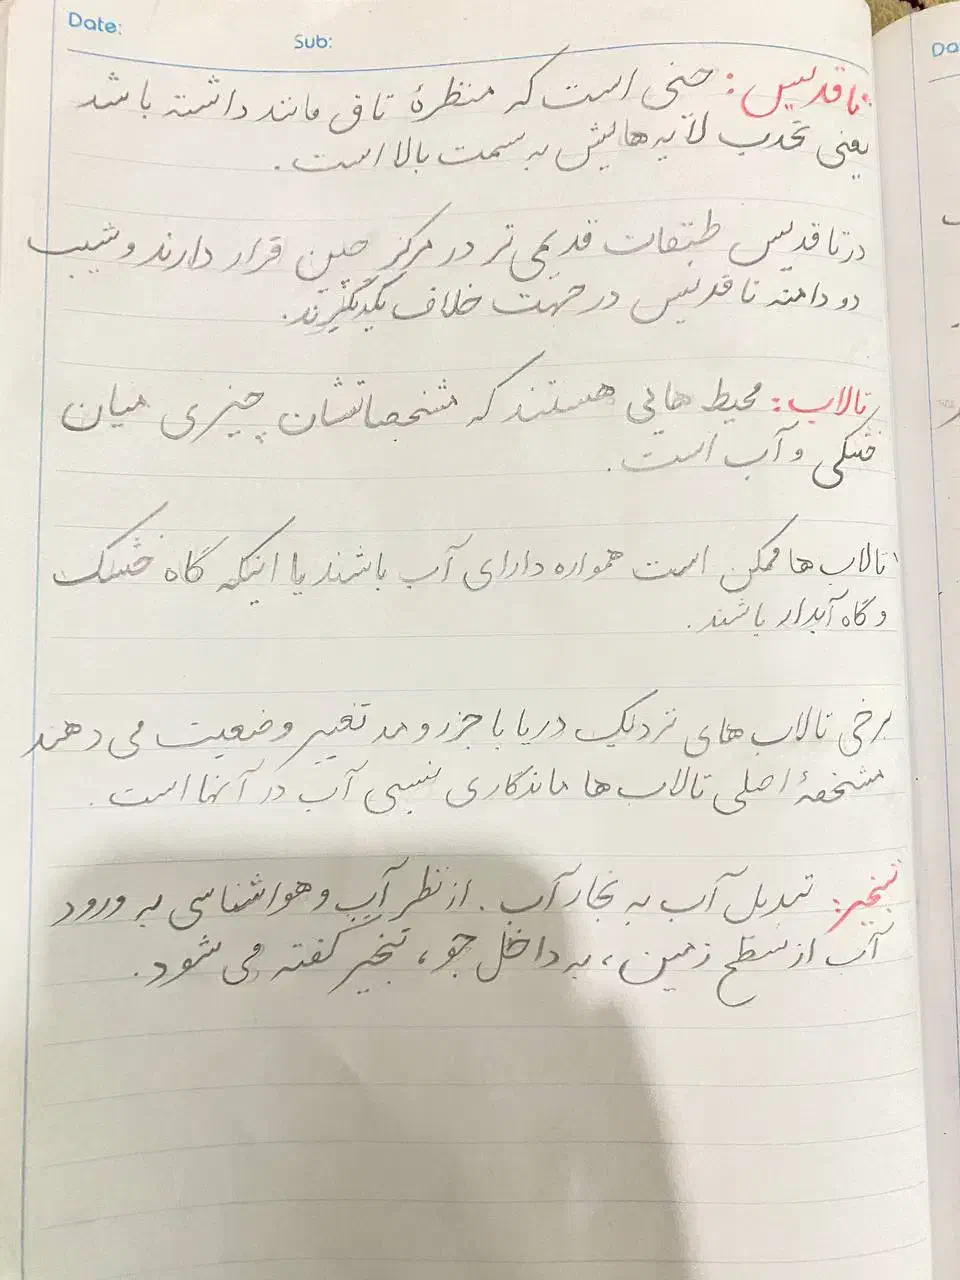 Date:
Sub:
تاقدیس: چینی است که منظرهٔ تاق مانند داشته باشد
یعنی تحدب لایه‌هایش به سمت بالا است.
در تاقدیس طبقات قدیمی تر در مرکز چین قرار دارند و شیب
دو دامنه تاقدیس در جهت خلاف یکدیگرند.
تالاب: محیط هایی هستند که مشخصاتشان چیزی میان
خشکی و آب است.
تالاب ها ممکن است همواره دارای آب باشند یا اینکه گاه خشک
و گاه آبدار باشند.
برخی تالاب های نزدیک دریا با جزر و مد تغییر وضعیت می دهند
مشخصهٔ اصلی تالاب ها ماندگاری نسبی آب در آنها است.
تبخیر: تبدیل آب به بخار آب. از نظر آب و هواشناسی به ورود
آب از سطح زمین، به داخل جو، تبخیر گفته می شود.